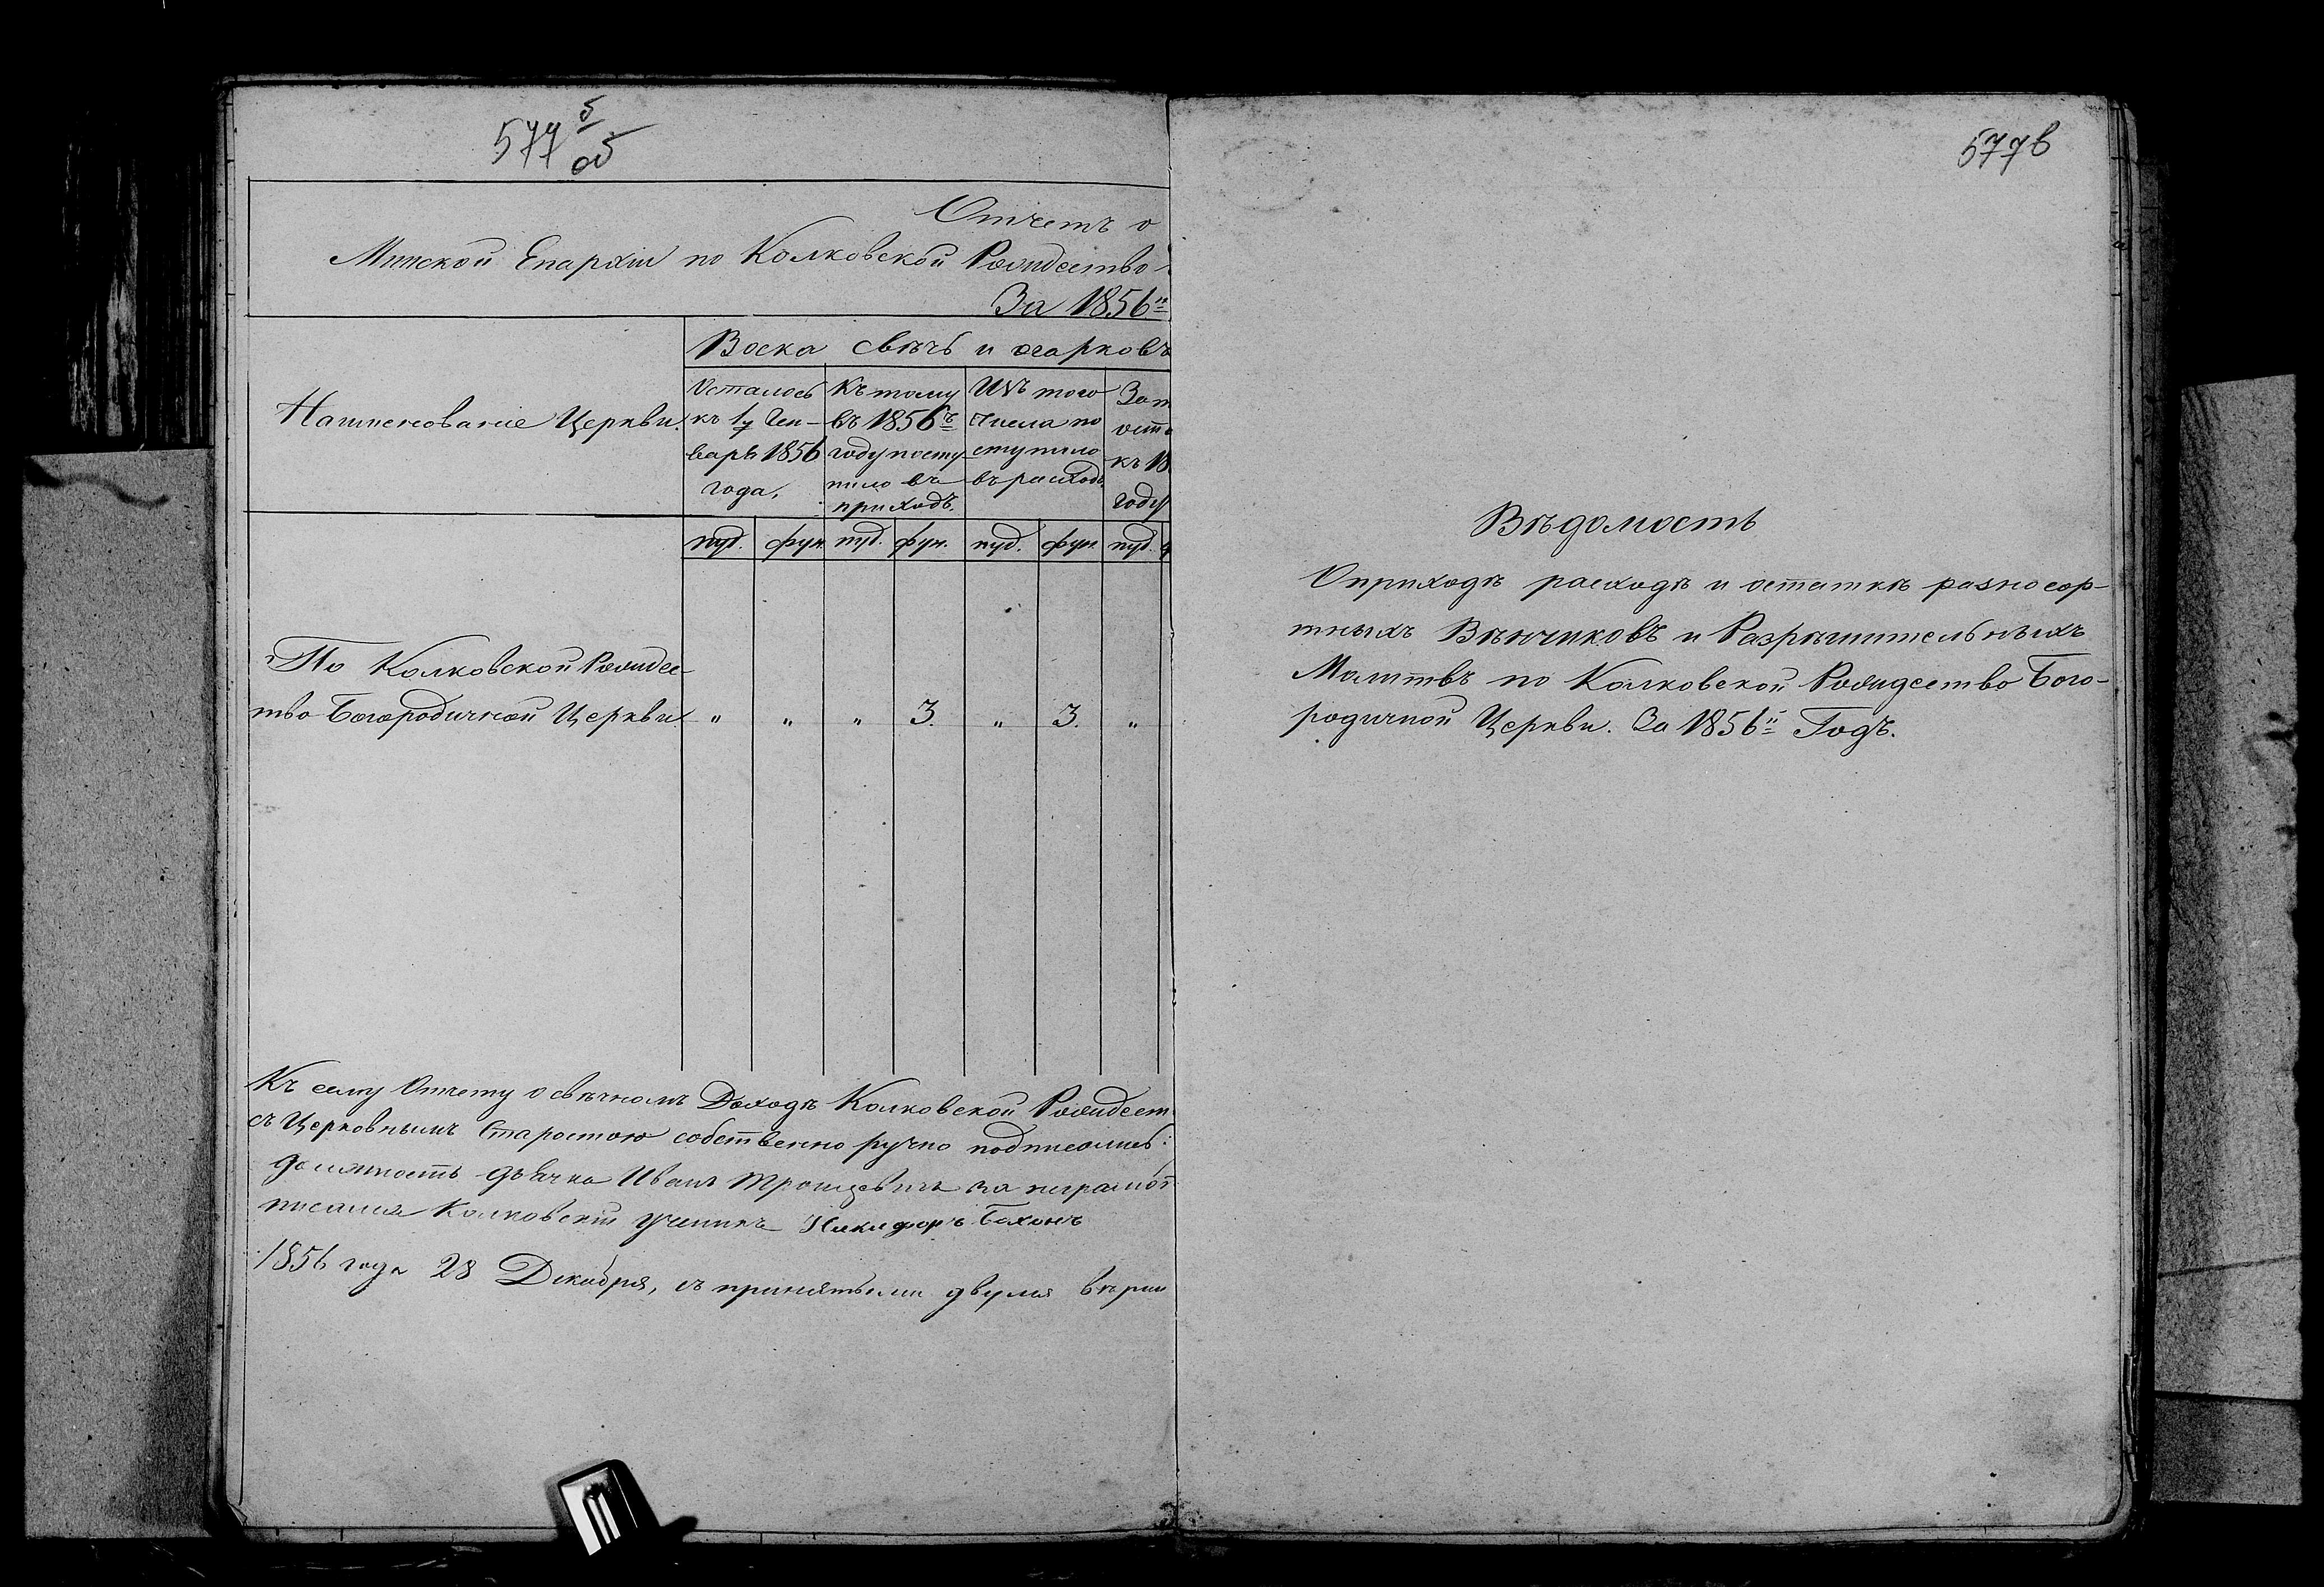 577 б
об
Отчетъ о
Минской Епархіи по Колковской Рождество-
За 1856й
Воска свѣчь и огарковъ
Наименованіе Церкви.
Осталось
къ 1у Ген-
варь 1856
года.
Къ тому
въ 1856ъ
году посту
пило въ
приходъ.
Изъ того
числа по
ступило
въ расходъ.
За т
оста
къ 18
году
пуд. фун. пуд. фун. пуд. фун. пуд. ф
По Колковской Рождес-
тво Богородичной Церкви. " " " 3. " 3. "
Къ сему Отчету о свѣчномъ Доходѣ Колковской Рождест
съ Церковнымъ Старостою собственно ручно подписались:
должность дьячка Иванъ за неграмот
писался Колковскій ученикъ Никифоръ
1856 года 28 Декабря, съ принятыми двумя вѣрни
577в
Вѣдомость
О приходѣ расходѣ и остаткѣ разносор-
тныхъ Вѣнчиковъ и Разрѣшительныхъ
Молитвъ по Колковской Рождество Бого-
родичной Церкви. За 1856й Годъ.